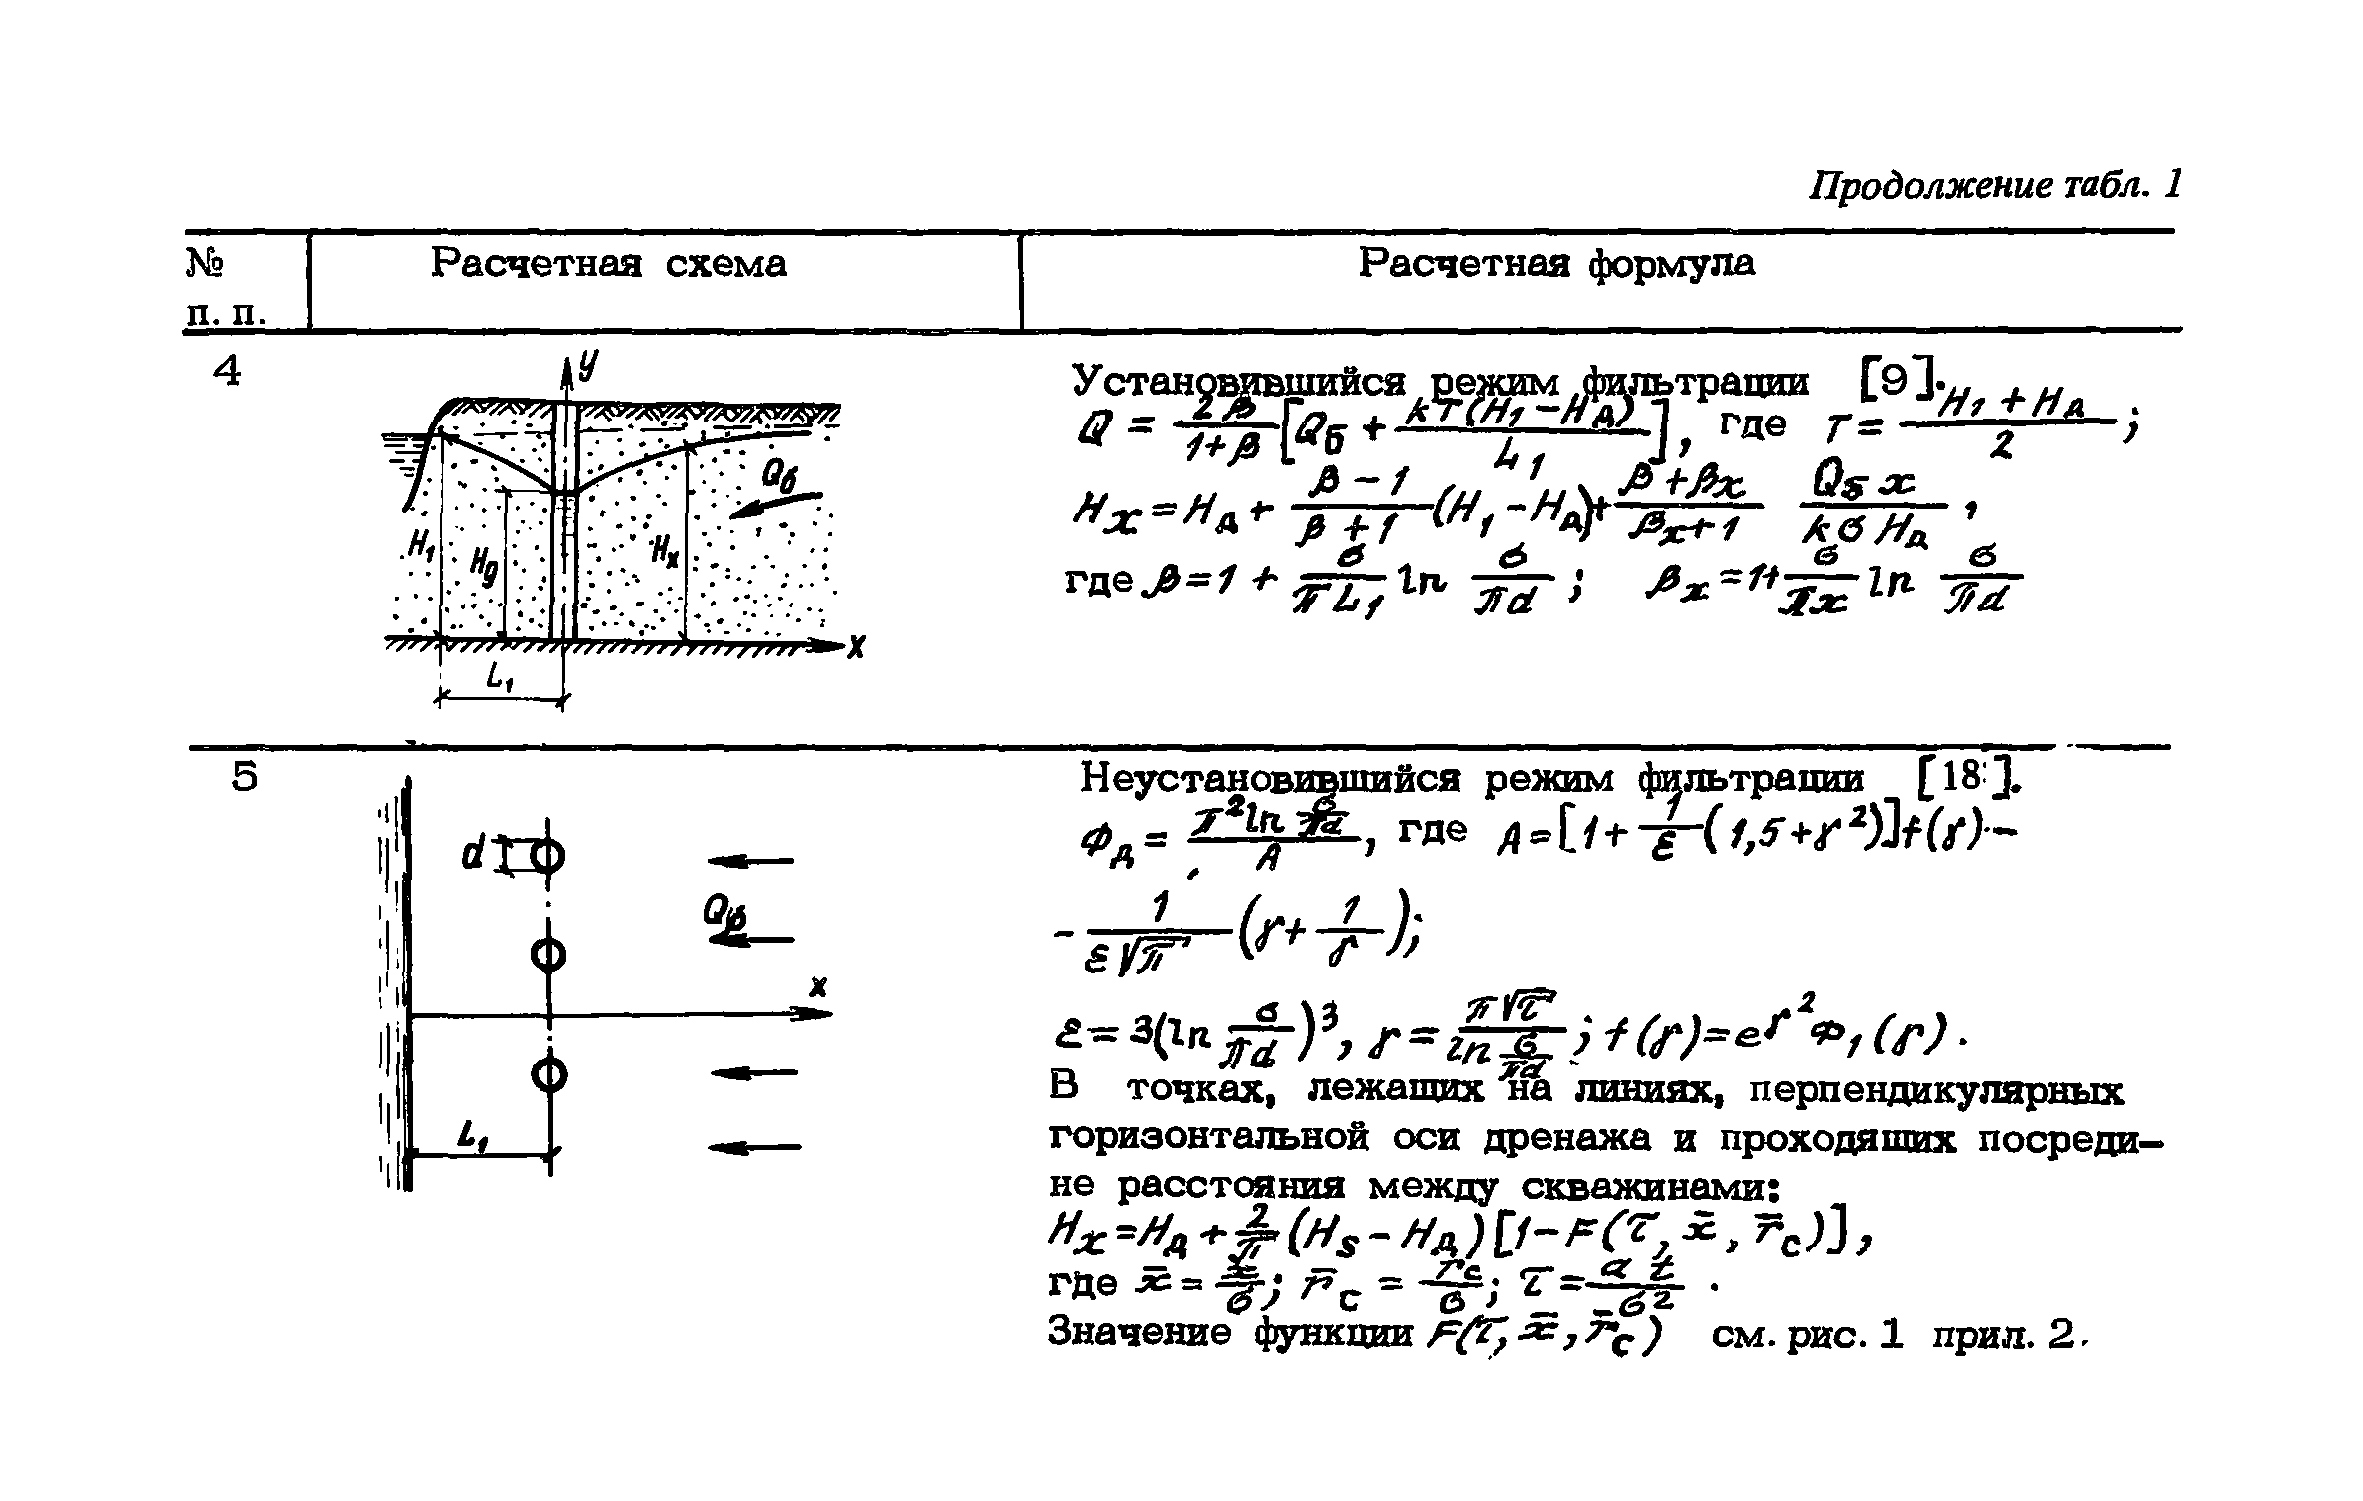 Продолжение табл. 1
№ п. п.
Расчетная схема
Расчетная формула
4
y
Qб
H₁
Hд
Hx
x
L₁
Установившийся режим фильтрации [9].
Q = 2β/(1+β) [Qб + kT(H₁ − Hд)/L₁], где T = (H₁ + Hд)/2;
Hx = Hд + (β − 1)/(β + 1) (H₁ − Hд) + (β + βx)/(βx + 1) Qб x/(k σ Hд),
где β = 1 + σ/(π L₁) ln σ/(πd); βx = 1 + σ/(πx) ln σ/(πd)
5
d
Qб
x
L₁
Неустановившийся режим фильтрации [18].
Φд = π² ln σ/(πd) / A, где A = [1 + 1/ε (1,5 + γ²)] f(γ) −
− 1/(ε√π) (γ + 1/γ);
ε = 3(ln σ/(πd))³, γ = π√τ / ln σ/(πd); f(γ) = e^γ² Φ₁(γ).
В точках, лежащих на линиях, перпендикулярных
горизонтальной оси дренажа и проходящих посреди-
не расстояния между скважинами:
Hx = Hд + 2/π (Hs − Hд) [1 − F(τ, x̄, r̄c)],
где x̄ = x/σ; r̄c = rc/σ; τ = a t/σ².
Значение функции F(τ, x̄, r̄c) см. рис. 1 прил. 2.